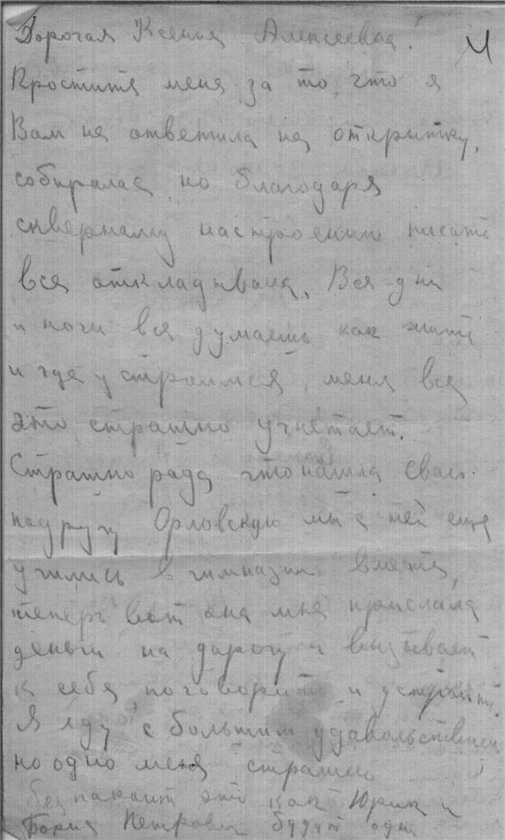 Дорогая Ксения Алексеевна!
Простите меня за то, что я
Вам не ответила на открытку,
собиралась, но благодаря
скверному настроению писать
все откладывала. Все дни
и ночи все думаешь как жить
и где устроимся, меня все
это страшно угнетает.
Страшно рада что нашла свою
подругу Орловскую мы с ней еще
учились в гимназии вместе,
теперь вот она мне прислала
деньги на дорогу и вызывает
к себе поговорить и устроить.
Я еду с большим удовольствием
но одно меня страшно
беспокоит это как Юрик и
Борис Петрович будут одни